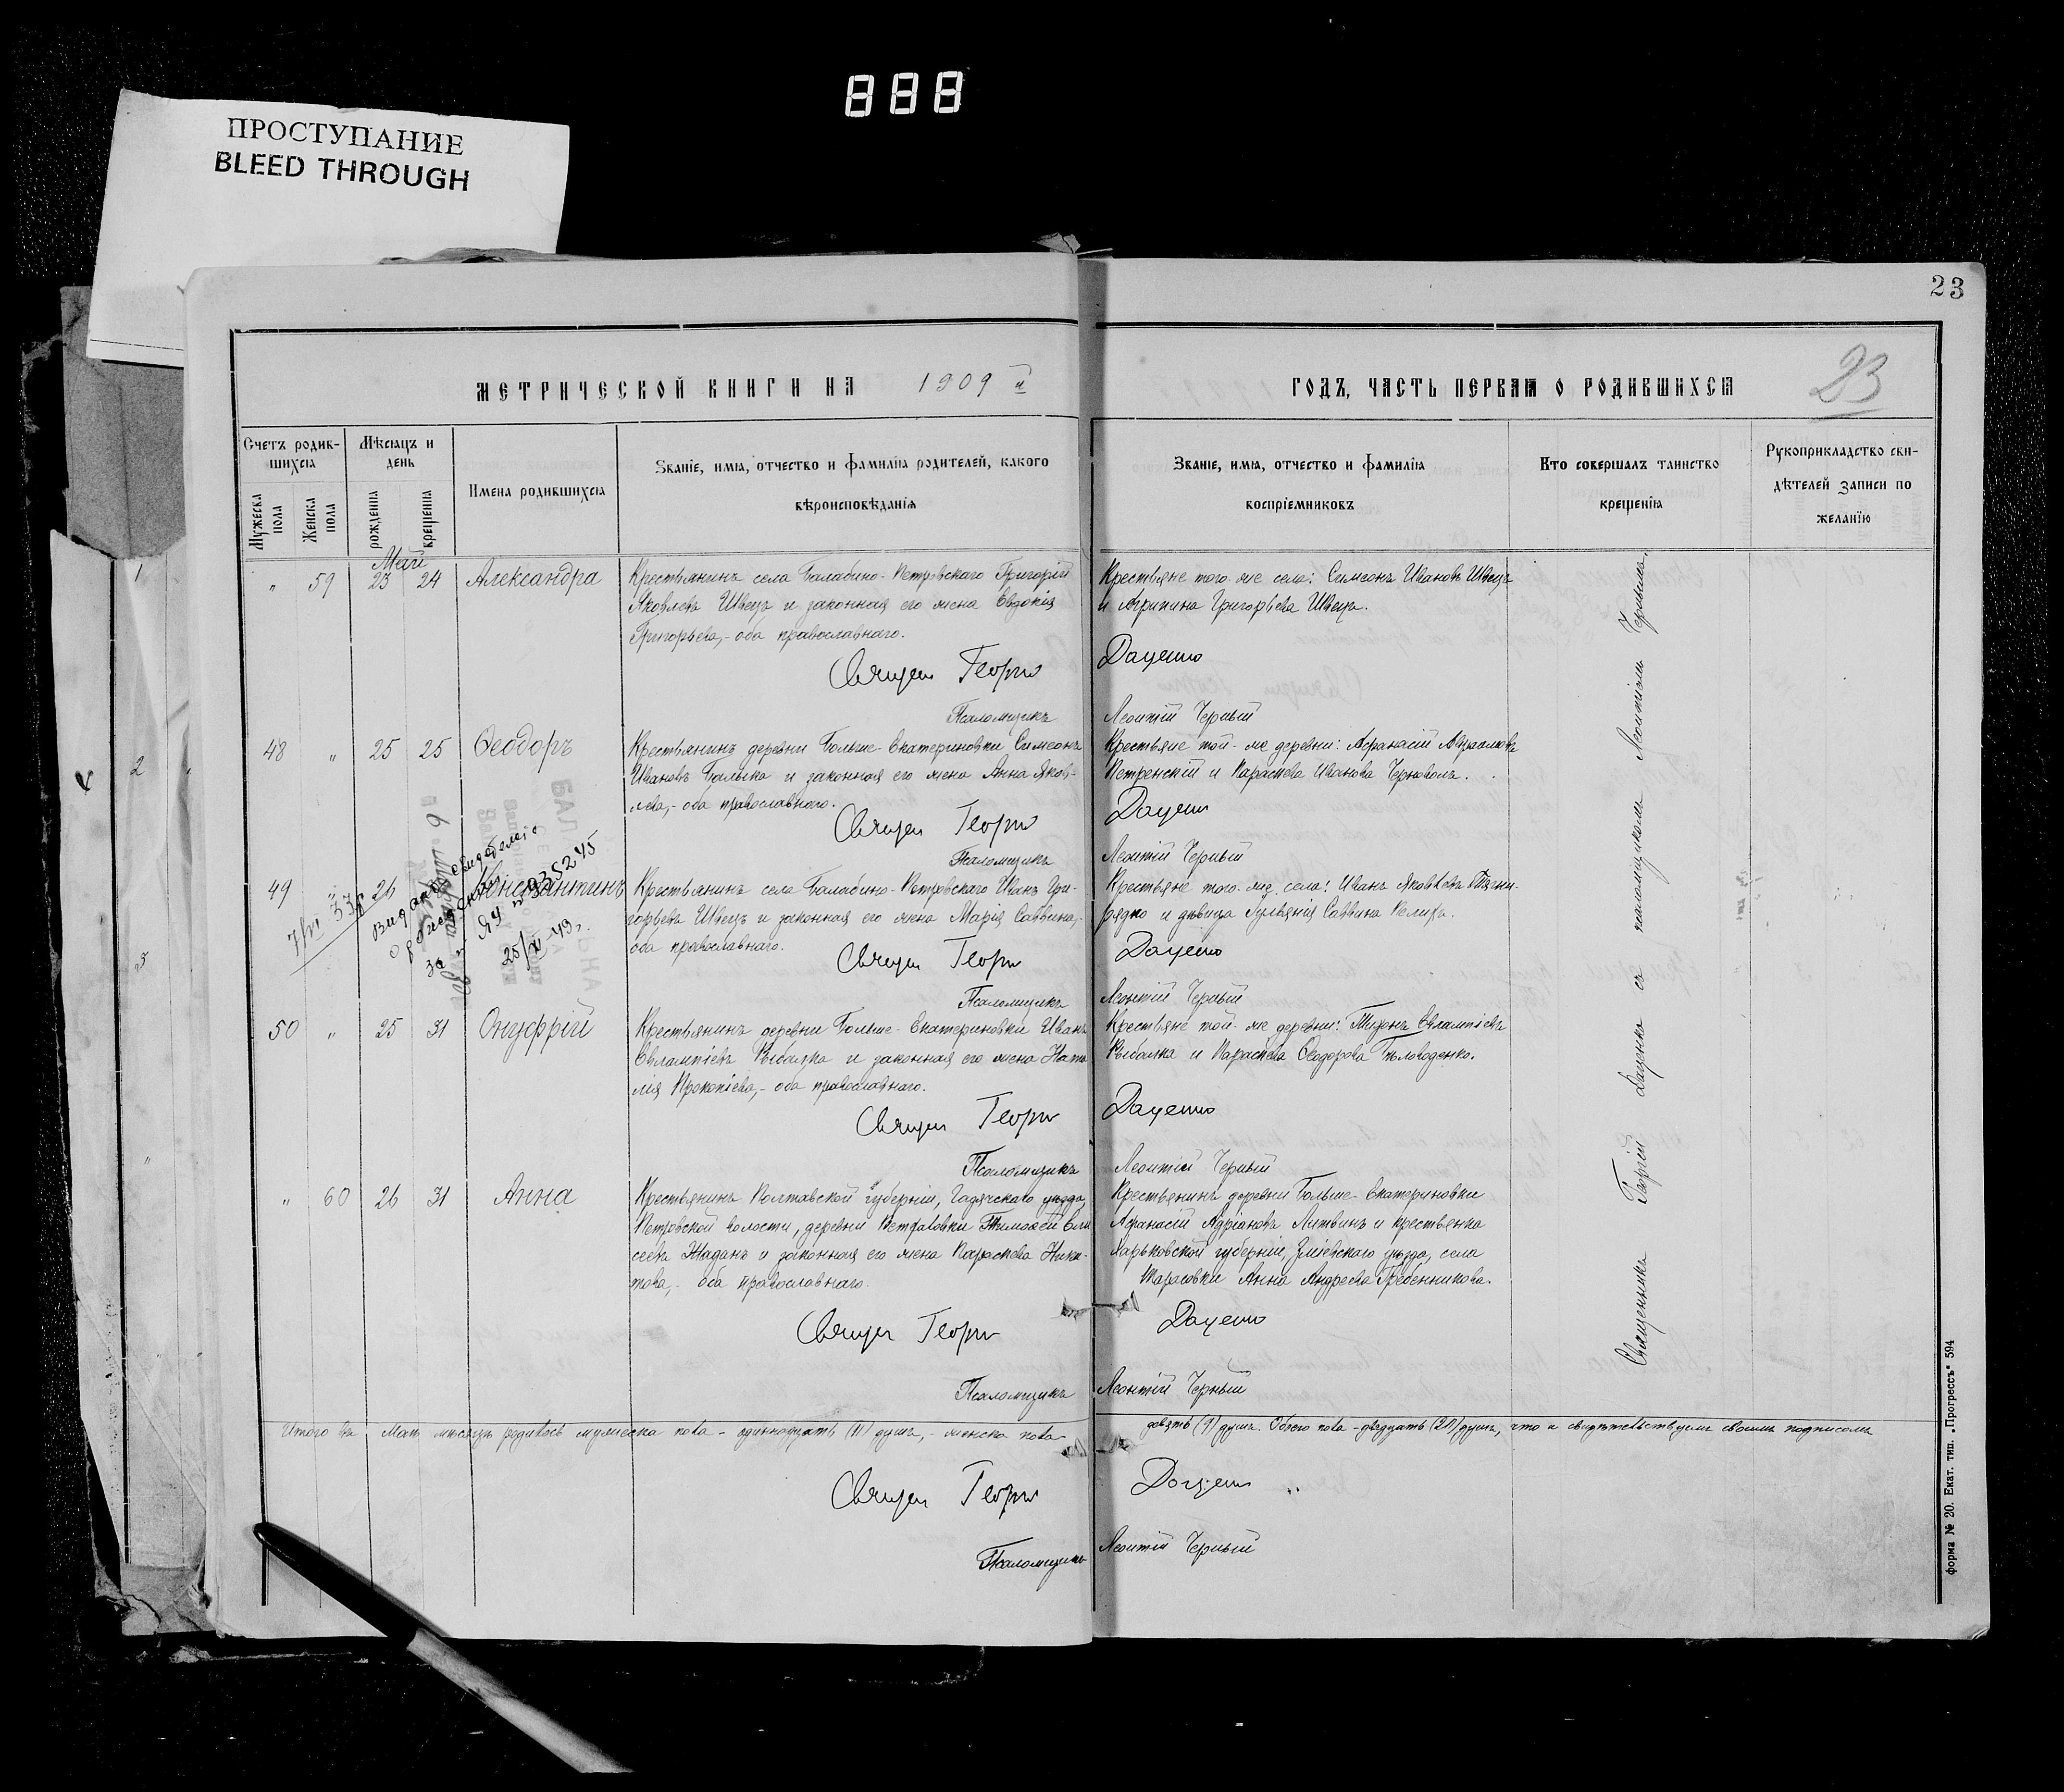 888
ПРОСТУПАНИЕ
BLEED THROUGH
23
23
МЕТРИЧЕСКОЙ КНИГИ НА 1909 й
ГОДЪ, ЧАСТЬ ПЕРВАЯ О РОДИВШИХСЯ
Счетъ родив-
шихся
Мужеска пола
Женска пола
Мѣсяцъ и
день
рожденія
крещенія
Имена родившихся
Званіе, имя, отчество и фамилія родителей, какого
вѣроисповѣданія
Званіе, имя, отчество и фамилія
воспріемниковъ
Кто совершалъ таинство
крещенія
Рукоприкладство сви-
дѣтелей записи по
желанію
Май
" 59 23 24 Александра
Крестьянинъ села Балабино-Петровскаго Григорій
Яковлевъ Швецъ и законная его жена Евдокія
Григорьева,- оба православнаго.
Крестьяне того-же села: Симеонъ Ивановъ Швецъ
и Агрипина Григорьева Швецъ.
Священ Георгій Даценко
Псаломщикъ Леонтій Черный
48 " 25 25 Ѳеодоръ
Крестьянинъ деревни Больше-Екатериновки Симеонъ
Ивановъ и законная его жена Анна Яков-
лева,- оба православнаго.
Крестьяне той-же деревни: Афанасій
Петренскій и Параскева Иванова Черноволъ.
Священ Георгій Даценко
Псаломщикъ Леонтій Черный
49 26 Константинъ
Крестьянинъ села Балабино-Петровскаго Иванъ Гри-
горьевъ Швецъ и законная его жена Марія Саввина,-
оба православнаго.
Крестьяне того-же села: Иванъ Яковлевъ Тягни-
рядно и дѣвица Саввина
Священ Георгій Даценко
Псаломщикъ Леонтій Черный
видано
за № 935245
25/XI 43 г.
50 " 25 31 Онуфрій
Крестьянинъ деревни Больше-Екатериновки Иванъ
Евлампіевъ Рыбалка и законная его жена Ната-
лія Прокопіева,- оба православнаго.
Крестьяне той-же деревни: Тихонъ Евлампіевъ
Рыбалка и Параскева Ѳеодорова Бѣловоденко.
Священ Георгій Даценко
Псаломщикъ Леонтій Черный
" 60 26 31 Анна
Крестьянинъ Полтавской губерніи, Гадячскаго уѣзда,
Петровской волости, деревни Тимоѳей Ели-
сеевъ Жаданъ и законная его жена Параскева Ники-
това,- оба православнаго.
Крестьянинъ деревни Больше-Екатериновки
Афанасій Адріановъ Литвинъ и крестьянка
Харьковской губерніи, Зміевскаго уѣзда, села
Тарасовки Анна Андреева Гребенникова.
Священ Георгій Даценко
Псаломщикъ Леонтій Черный
Священникъ Георгій Даценко съ псаломщикомъ Леонтіемъ Чернымъ.
Итого въ Маѣ мѣсяцѣ родилось мужеска пола - одиннадцать (11) душъ,- женска пола
девять (9) душъ. Обоего пола - двадцать (20) душъ, что и свидѣтельствуемъ своимъ подписомъ
Священ Георгій Даценко
Псаломщикъ Леонтій Черный
форма № 20. Екат. тип. „Прогрессъ" 594